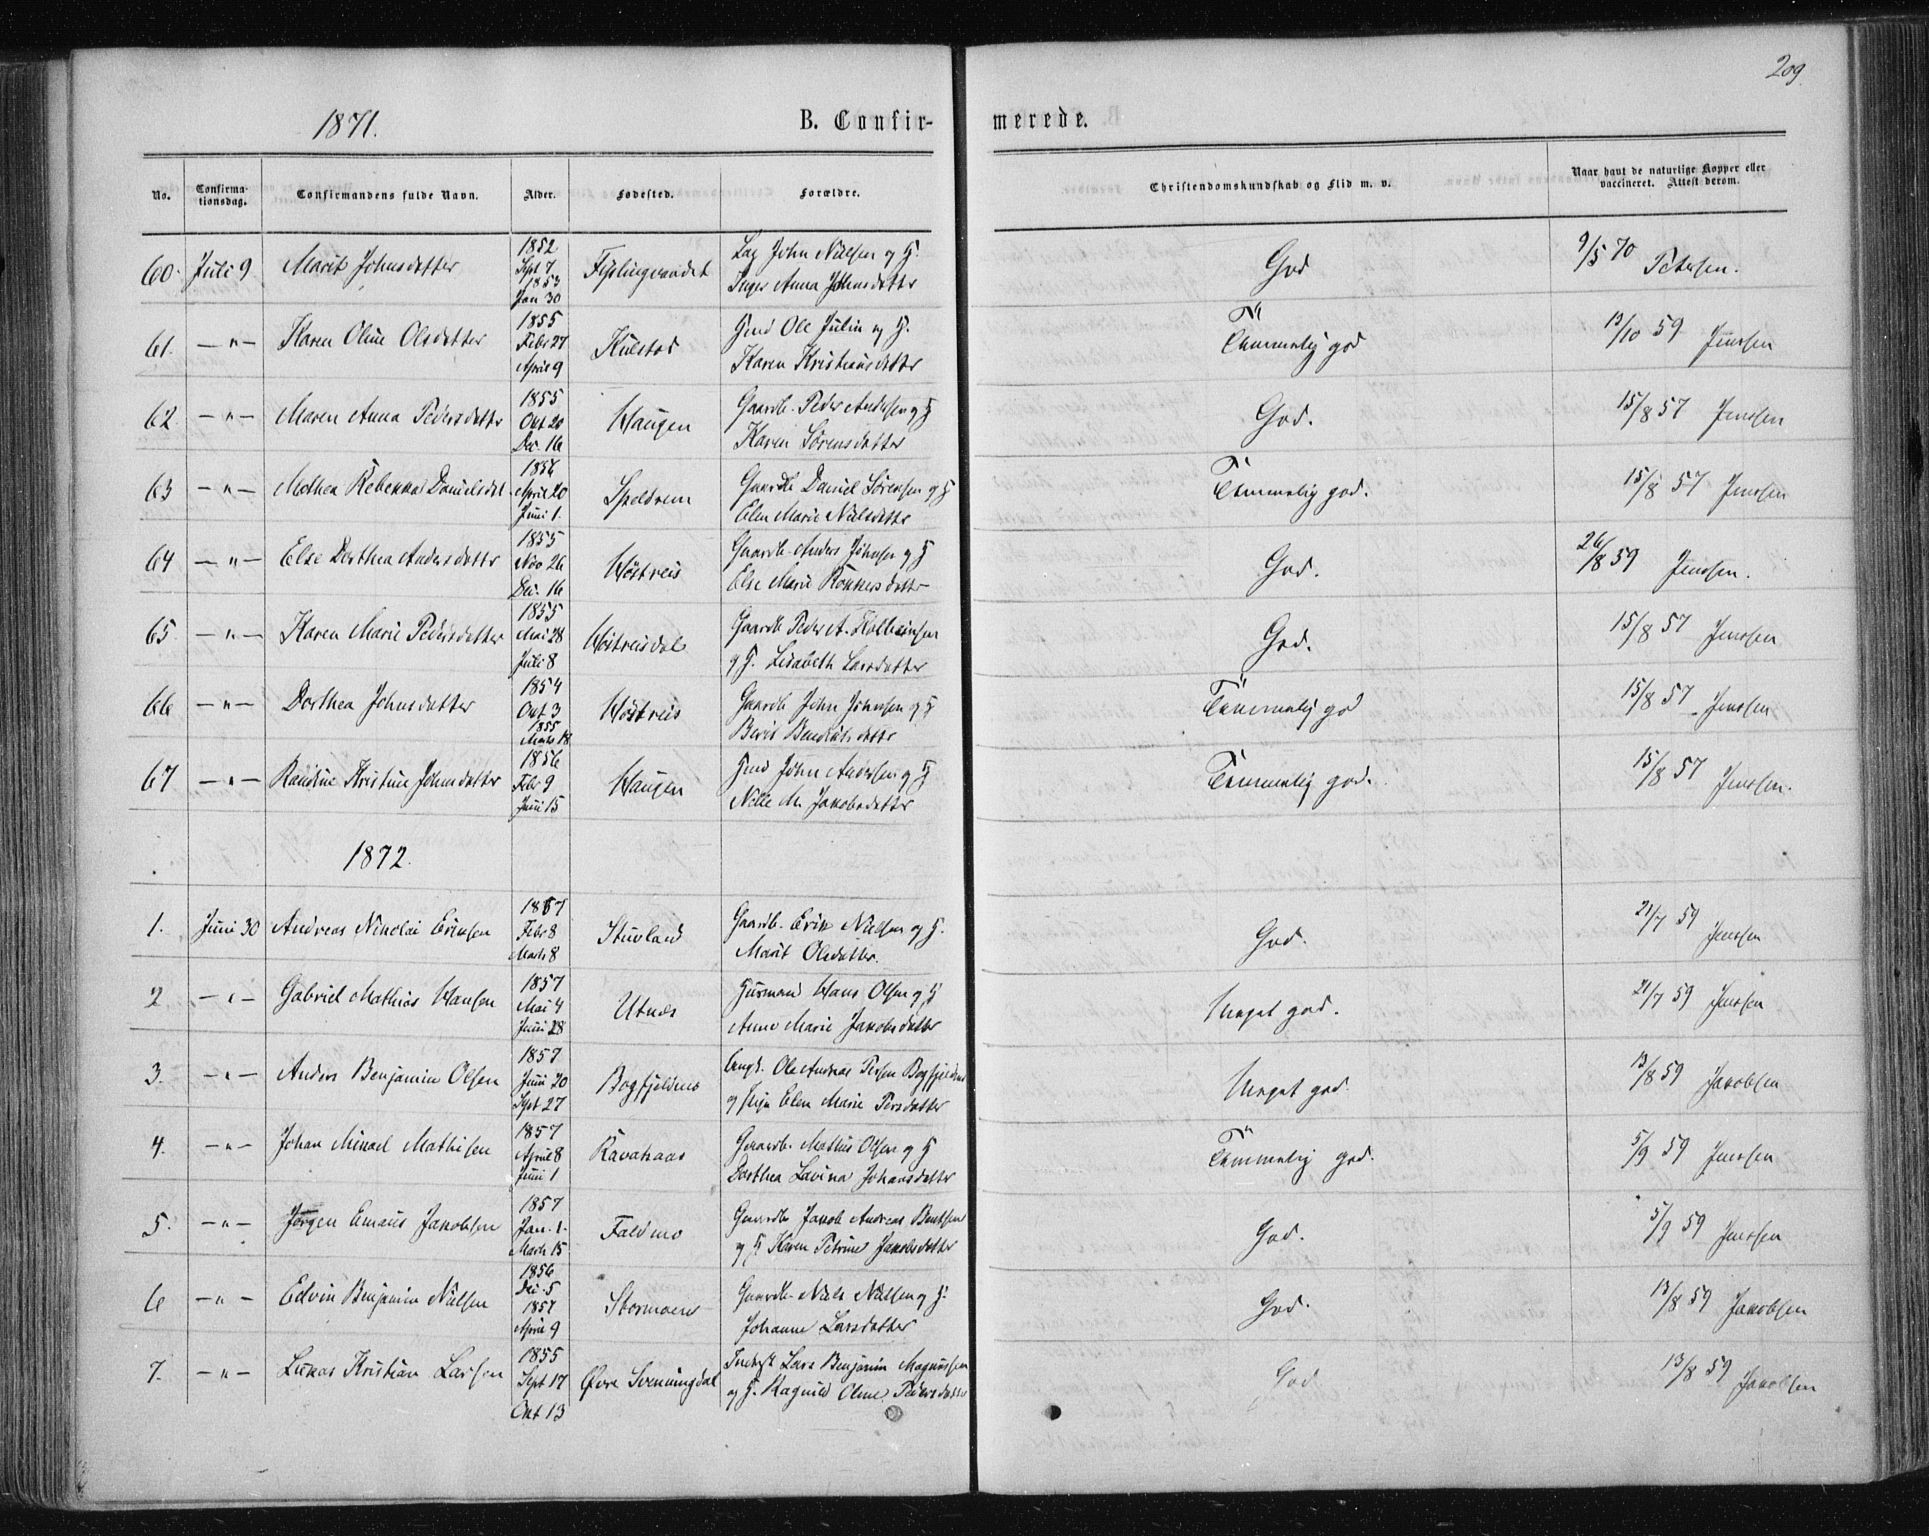 209.
1871.
B. Confir-
merede.
No.
Confirma-
tionsdag.
Confirmandens fulde Navn.
Alder.
Fødested.
Forældre.
Christendomskundskab og Flid m. v.
Naar havt de naturlige Kopper eller
vaccineret. Attest derom.
60. Juli 9 Marit Johnsdatter 1852 Sept 7 1853 Jan 30 Fiplingvandet Lap John Nielsen og H. Inger Anna Johnsdatter God 9/5 70 Petersen.
61. — " — Karen Oline Olsdatter 1855 Febr 27 April 9 Kulstad Ole Julin og H. Karen Kristiansdatter Temmelig god 13/10 59 Jenssen
62. — " — Maren Anna Pedersdatter 1855 Okt 20 Dec. 16 Haugen Gaardb. Peder Andersen og H Karen Sørensdatter God. 15/8 57 Jenssen
63 — " — Mathea Rebekka Danielsdat 1856 April 20 Juni 1. Speldrem Gaardb Daniel Sørensen og H Elen Marie Nielsdatter Temmelig god. 15/8 57 Jenssen
64 — " — Else Dorthea Andersdatter 1855 Nov 26 Dec. 16 Høstreis Gaardb. Anders Johnsen og H Else Marie God. 26/8 59 Jenssen.
65. — " — Karen Marie Pedersdatter 1855 Mai 28 Juli 8 Høstreisdal Gaardb Peder A. og H. Lisabeth Larsdatter God. 15/8 57 Jenssen
66 — " — Dorthea Johnsdatter 1854 Okt 3 1855 Marts 18 Høstreis Gaardb John Johnsen og H Berit Bendiktsdatter Temmelig god 15/8 57 Jenssen
67 — " — Randine Kristine Johnsdatter 1856 Febr 9 Juni 15 Haugen John Andersen og H Nille M. Jakobsdatter Temmelig god. 15/8 57 Jenssen.
1872.
1. Juni 30 Andreas Nikolai Eriksen 1857 Febr 8 Marts 8 Stuvland Gaardb. Erik Nielsen og H. Marit Olsdatter. God. 21/7 59 Jenssen
2 — " — Gabriel Mathias Hansen 1857 Mai 4 Juni 28 Utnæs Husmand Hans Olsen og H Anne Marie Jakobsdatter Meget god. 21/7 59 Jenssen
3. — " — Anders Benjamin Olsen 1857 Juni 20 Sept 27 Bogfjeldmo Ungk. Ole Andreas Persen Bogfjeldmo og Pige Elen Marie Persdatter Meget god. 13/8 59 Jakobsen
4. — " — Johan Mikael Mathisen 1857 April 8 Juni 1 Ravatraas Gaardb. Mathis Olsen og H Dorthea Lavina Johansdatter Temmelig god. 5/9 59 Jenssen
5. — " — Jørgen Emaus Jakobsen 1857 Jan. 1. Marts 15 Faldmo Gaardb Jakob Andreas Bentsen og H Karen Petrine Jakobsdatter God. 5/9 59 Jenssen
6 — " — Edvin Benjamin Nielsen 1856 Dec. 5 1857 April 9 Stormoen Gaardb. Niels Nielsen og H. Johanna Larsdatter God. 13/8 59 Jakobsen
7. — " — Lukas Kristian Larsen 1855 Sept 17 Okt 13 Øvre Svenningdal Inderst Lars Benjamin Magnussen og H. Ragnild Oline Pedersdatter God 13/8 59 Jakobsen